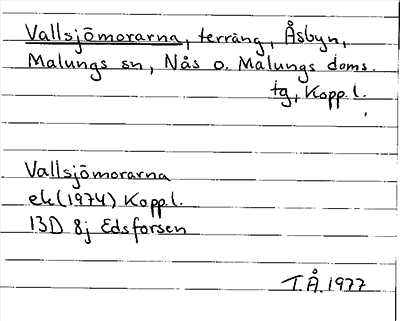 Vallsjömorarna, terräng, Åsbyn,
Malungs sn, Nås o. Malungs doms.
tg, Kopp.l.
Vallsjömorarna
ek (1974) Kopp.l.
13D 8j Edsforsen
T.Å. 1977